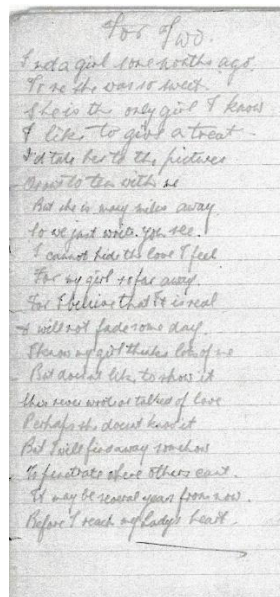 For Two.
I met a girl some months ago
To me she was so sweet.
She is the only girl I know
I like to give a treat -
I'd take her to the pictures
Or out to tea with me
But she is many miles away
So we just write you see.
I cannot hide the love I feel
For my girl so far away.
For I believe that it is real
& will not fade some day.
I know my girl thinks lots of me
But doesn't like to show it
She never words or talks of love
Perhaps she doesnt know it
But I will find a way somehow
To penetrate where others can't.
It may be several years from now.
Before I reach my Lady's heart.